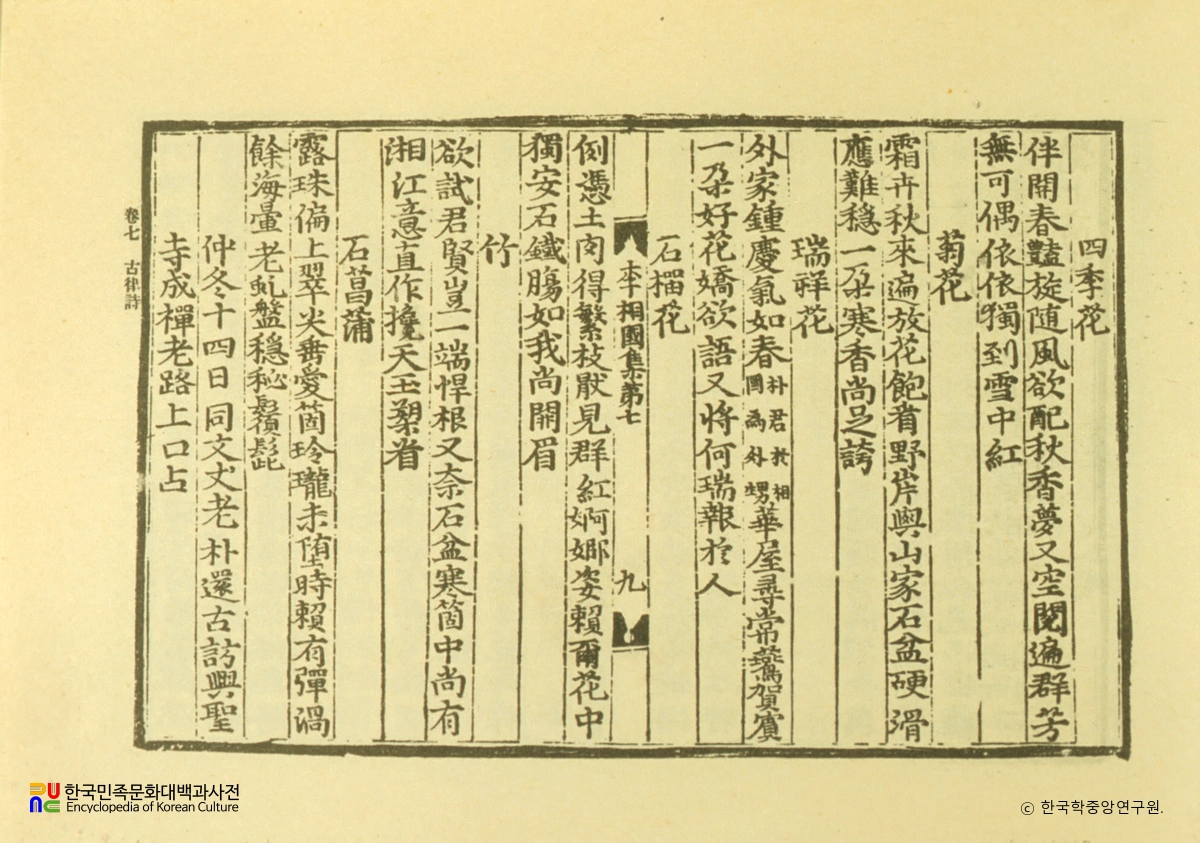 四季花
伴開春豔旋随風欲配秋香夢又空閱遍群芳
無可偶依依獨到雪中紅
菊花
霜卉秋來遍放花飽看野岸與山家石盆硬滑
應難穩一朶寒香尚足誇
瑞祥花
外家鍾慶氣如春朴君於相國為外甥華屋尋常鷰賀賓
一朶好花嬌欲語又將何瑞報於人
石榴花
李相國集第七 九
倒憑土肉得繁枝猒見群紅婀娜姿賴爾花中
獨安石鐵膓如我尚開眉
竹
欲試君賢豈一端悍根又奈石盆寒箇中尚有
湘江意直作攙天玉槊看
石菖蒲
露珠偏上翠尖垂愛箇玲瓏未堕時賴有彈渦
餘海量老虬盤穩秘鬚髭
仲冬十四日同文丈老朴還古訪興聖
寺成禪老路上口占
卷七 古律詩
한국민족문화대백과사전
Encyclopedia of Korean Culture
ⓒ 한국학중앙연구원.